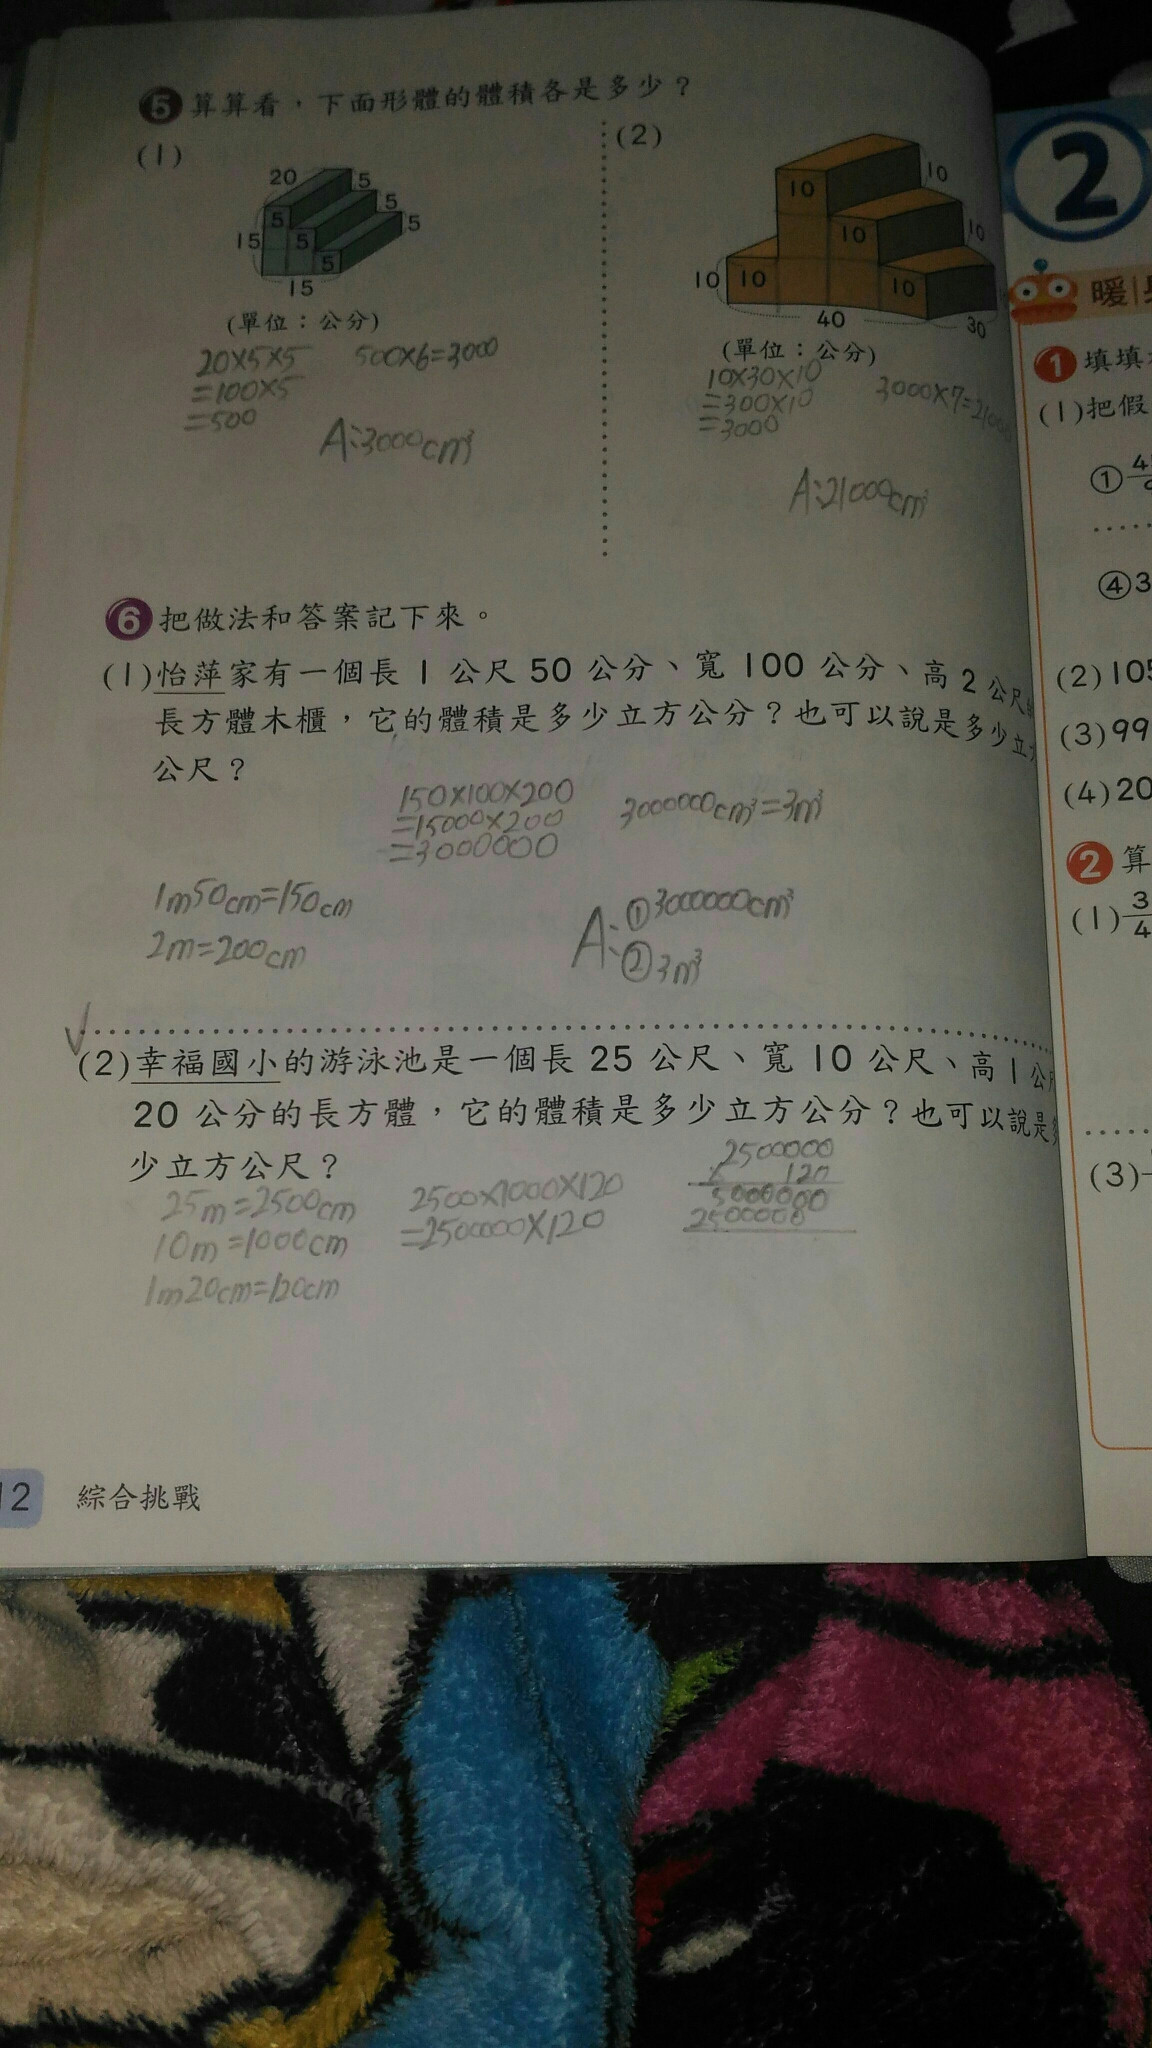 5 算算看，下面形體的體積各是多少？
(1)
20
5
5
5
5
5
5
15
15
(單位：公分)
20×5×5
=100×5
=500
500×6=3000
A:3000cm³
(2)
10
10
10
10
10
10
10
40
30
(單位：公分)
10×30×10
=300×10
=3000
3000×7=21000
A:21000cm³
6 把做法和答案記下來。
(1)怡萍家有一個長 1 公尺 50 公分、寬 100 公分、高 2 公尺
長方體木櫃，它的體積是多少立方公分？也可以說是多少立
公尺？
150×100×200
=15000×200
=3000000
3000000cm³=3m³
1m50cm=150cm
2m=200cm
A:①3000000cm³
②3m³
(2)幸福國小的游泳池是一個長 25 公尺、寬 10 公尺、高 1 公
20 公分的長方體，它的體積是多少立方公分？也可以說是
少立方公尺？
25m=2500cm
10m=1000cm
1m20cm=120cm
2500×1000×120
=2500000×120
2500000
× 120
5000000
2500000
12 綜合挑戰
2
暖
1 填填
(1)把假
①
④3
(2)105
(3)99
(4)20
2 算
(1)3
4
(3)